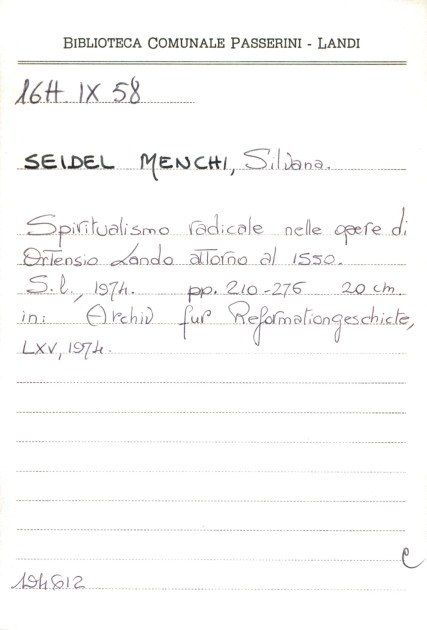 BIBLIOTECA COMUNALE PASSERINI - LANDI
16H IX 58
SEIDEL MENCHI, Silvana.
Spiritualismo radicale nelle opere di
Ortensio Lando attorno al 1550.
S.l., 1974. pp. 210-276 20 cm.
in: Archiv fur Reformationgeschicte,
LXV, 1974.
C